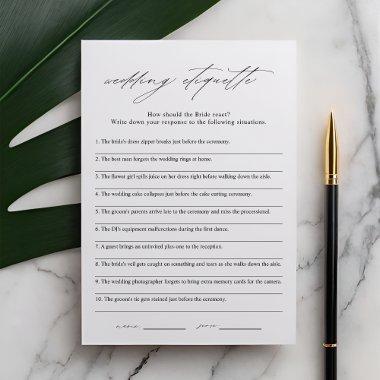 wedding etiquette
How should the Bride react?
Write down your response to the following situations.
1. The bride's dress zipper breaks just before the ceremony.
2. The best man forgets the wedding rings at home.
3. The flower girl spills juice on her dress right before walking down the aisle.
4. The wedding cake collapses just before the cake cutting ceremony.
5. The groom's parents arrive late to the ceremony and miss the processional.
6. The DJ's equipment malfunctions during the first dance.
7. A guest brings an uninvited plus-one to the reception.
8. The bride's veil gets caught on something and tears as she walks down the aisle.
9. The wedding photographer forgets to bring extra memory cards for the camera.
10. The groom's tie gets stained just before the ceremony.
name score